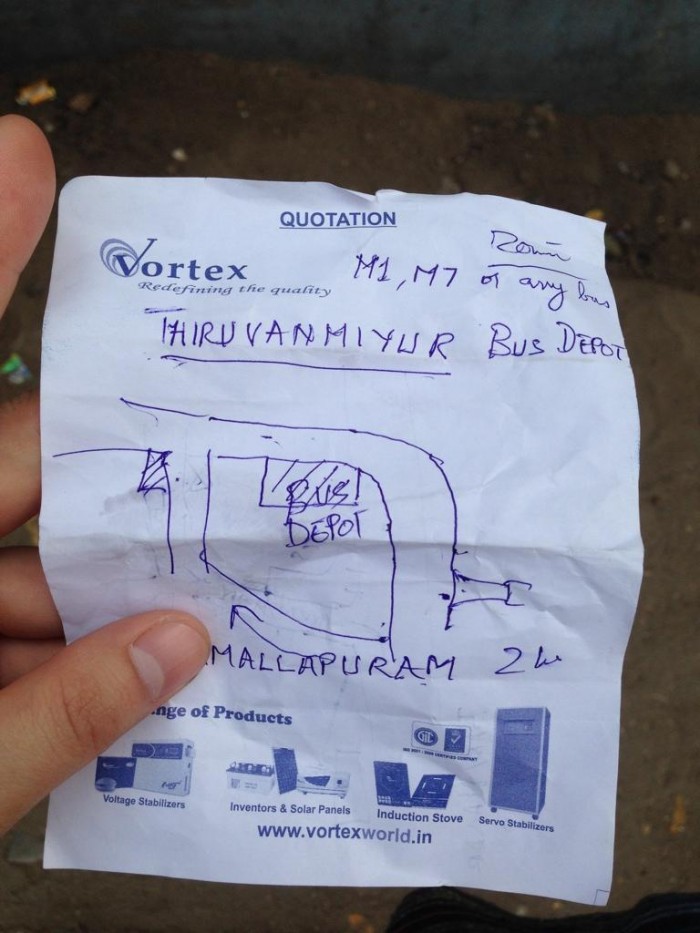 QUOTATION
Vortex
Redefining the quality
M1, M7 or any bus
THIRUVANMIYUR BUS DEPOT
BUS
DEPOT
AMALLAPURAM 2
nge of Products
Voltage Stabilizers
Inventors & Solar Panels
Induction Stove
Servo Stabilizers
www.vortexworld.in